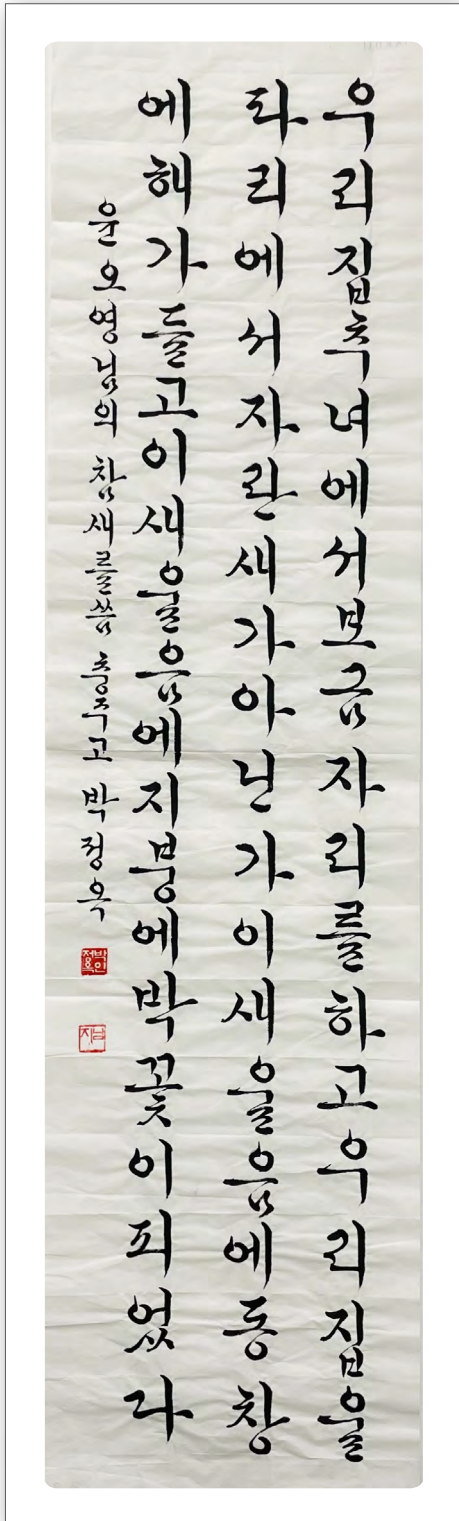 우리집추녀에서보금자리를하고우리집울
타리에서자란새가아닌가이새울음에동창
에해가들고이새울음에지붕에박꽃이피었다
윤오영님의 참새를씀 충주고 박정옥